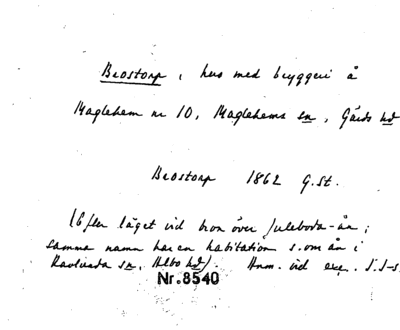 Brostorp, hus med bryggeri å
Maglehem nr 10, Maglehems sn, Gärds hd
Brostorp 1862 G.St.
(Efter läget vid bron över Juleboda-ån;
samma namn har en habitation s. om ån i
Ravlunda sn, Albo hd). Anm. vid exc. S.J-s
Nr.8540